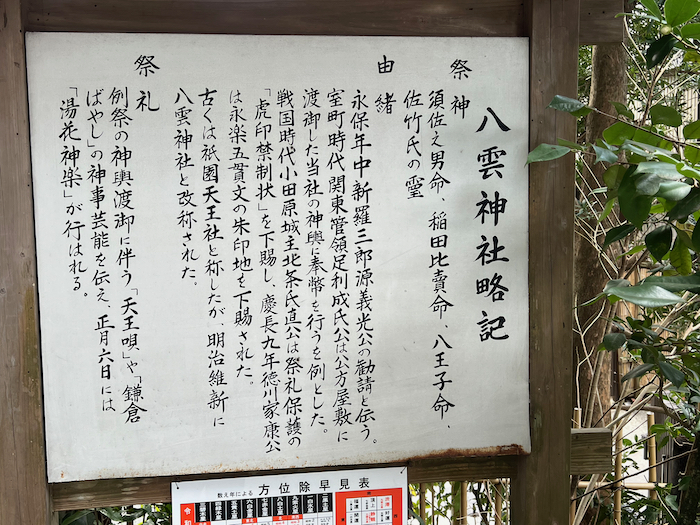 八雲神社略記
祭神
須佐之男命、稲田比賣命、八王子命、
佐竹氏の霊
由緒
永保年中新羅三郎源義光公の勧請と伝う。
室町時代関東管領足利成氏公は公方屋敷に
渡御した当社の神輿に奉幣を行うを例とした。
戦国時代小田原城主北条氏直公は祭礼保護の
「虎印禁制状」を下賜し、慶長九年徳川家康公
は永楽五貫文の朱印地を下賜された。
古くは祇園天王社と称したが、明治維新に
八雲神社と改称された。
祭礼
例祭の神輿渡御に伴う「天王唄」や「鎌倉
ばやし」の神事芸能を伝え、正月六日には
「湯花神楽」が行はれる。
数え年による 方位除早見表
令和